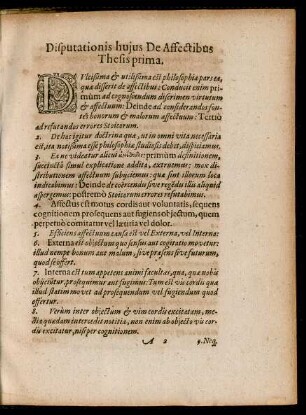 Disputationis hujus De Affectibus
Thesis prima.
DUlcissima & utilissima est philosophiæ pars ea,
quæ disserit de affectibus: Conducit enim pri-
mùm ad cognoscendum discrimen virtutum
& affectuum: Deinde ad considerandos fon-
tes bonorum & malorum affectuum: Tertiò
ad refutandos errores Stoicorum.
2. De hac igitur doctrina quæ, ut in omni vita necessaria
est, ita notissima esse philosophiæ studiosis debet, disputabimus.
3. Ea ne videatur alicui primùm definitionem,
succinctâ simul explicatione additâ, extruemus: mox di-
stributionem affectuum subjiciemus: quæ sint illorum loca
indicabimus: Deinde de coercendis eos regulis illu aliquid
aspergemus: postremò Stoicorum errores refutabimus.
4. Affectus est motus cordis aut voluntatis, sequens
cognitionem prosequens aut fugiens objectum, quem
perpetuò comitatur vel lætitia vel dolor.
5. Efficiens affectuum causa est vel Externa, vel Interna:
6. Externa est objectum quo sensus aut cogitatio movetur:
illud nempe bonum aut malum, sive præsens sive futurum,
quod se offert.
7. Interna est tum appetens animi facultas, qua, quæ nobis
objiciuntur, prosequimur aut fugimus: Tum est vis cordis qua
illud statim movet ad prosequendum vel fugiendum quod
offertur.
8. Verùm inter objectum & vim cordis excitatam, me-
dia quædam intercedit notitia, non enim ab objecto vis cor-
dis excitatur, nisi per cognitionem.
A 2 9. Neq;